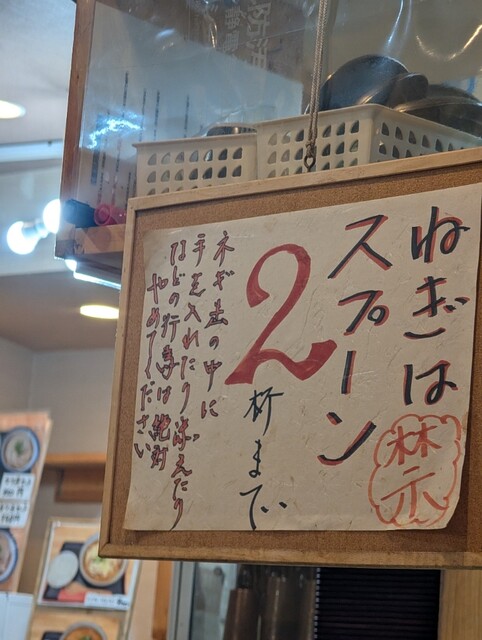 ねぎは
禁
スプーン
2
杯まで
ネギ壺の中に
手を入れたり添えたり
などの行為は絶対
やめてください